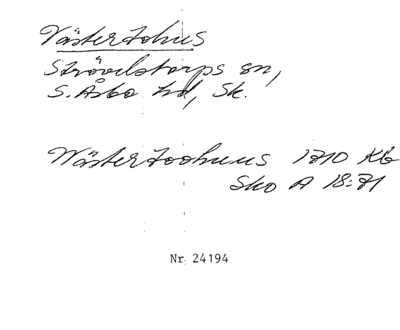 Västertohus
Strövelstorps sn,
S. Åsbo hd, Sk.
Wästertoohuus 1710 Kb
Sko A 18:71
Nr 24194